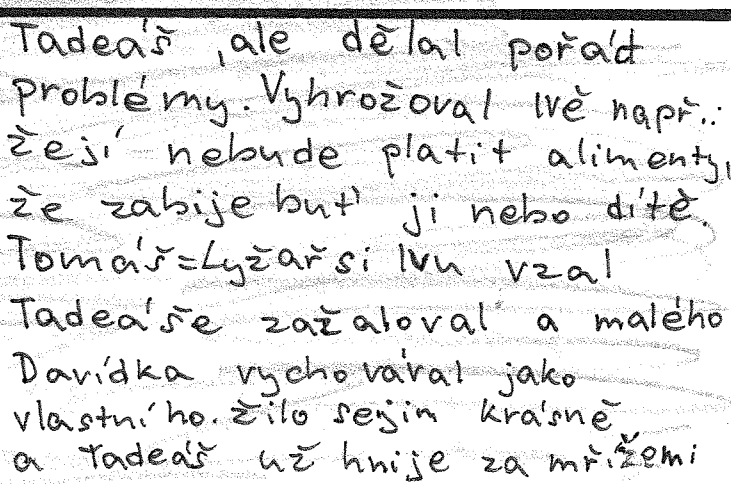 Tadeáš ,ale dělal pořád
problémy. Vyhrožoval Ivě např.:
žejí nebude platit alimenty,
že zabije buť ji nebo dítě.
Tomáš=Lyžař si Ivu vzal
Tadeáše zažaloval a malého
Davídka vychovával jako
vlastního. žilo sejim krásně
a Tadeáš už hnije za mřížemi